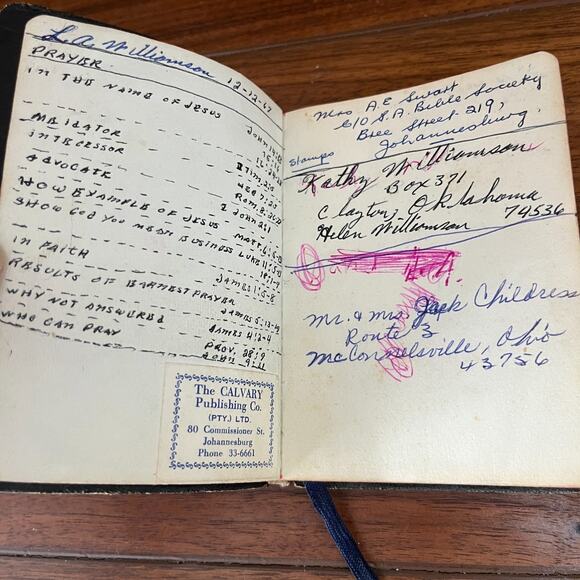 L.A. Williamson 12-12-67
PRAYER
IN THE NAME OF JESUS JOHN 14:13
MEDIATOR II TIM 2:5
INTECESSOR HEB 7:25
ROM. 8:26
ADVOCATE I JOHN 2:1
HOW EXAMPLE OF JESUS MATT. 6:5-8
SHOW GOD YOU MEAN BUSINESS LUKE 11:5-
IN FAITH JAMES 1:5-8
RESULTS OF EARNEST PRAYER JAMES 5:13-
WHY NOT ANSWERED JAMES 4:2-4
WHO CAN PRAY PROV. 28:9
JOHN 9:31
The CALVARY
Publishing Co.
(PTY.) LTD.
80 Commissioner St.
Johannesburg
Phone 33-6661
Mrs A.E Swart
c/o S.A. Bible Society
Bree Street 219,
Johannesburg.
Stamps
Kathy Williamson
Box 371
Clayton, Oklahoma
74536
Helen Williamson
L.A.
Mr. & Mrs. Jack Childress
Route 3
McConnelsville, Ohio
43756